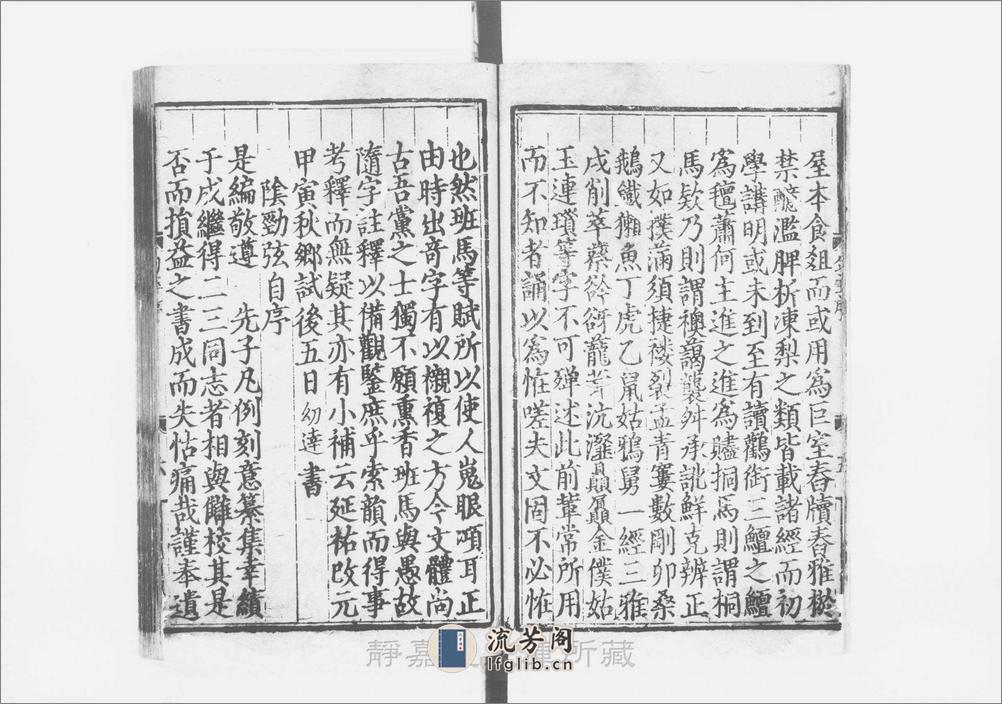 至本食俎而或用爲巨室舂牘舂雅椒
禁醯濫脾析凍梨之類皆載諸經而初
學講明或未到至有讀鸛銜三鱣之鱣
爲䱇蕭何主進之進爲贐挏馬則謂桐
馬欵乃則謂襖靄襲舛承訛鮮克辨正
又如撲滿須捷褸裂孟青窶數剛夘桑
鵝鐵獺魚丁虎乙鼠姑鴉舅一經三雅
戌削萃蔡谽谺蘢茸沆瀣贔屭金僕姑
玉連瑣等字不可殫述此前軰常所用
而不知者誦以爲恠嗟夫文固不必恠
也然班馬等賦所以使人嵬眼澒耳正
由時出竒字有以襯複之方今文體尚
古吾黨之士獨不願熏香班馬與愚故
隨字註釋以備觀鍳庶乎索韻而得事
考釋而無疑其亦有小補云延祐改元
甲寅秋鄉試後五日 幼達 書
陰勁弦自序
是編敬遵 先子凡例刻意纂集幸績
于成繼得二三同志者相與讎校其是
否而損益之書成而失怙痛哉謹奉遺
靜嘉 所藏
流芳阁
lfglib.cn